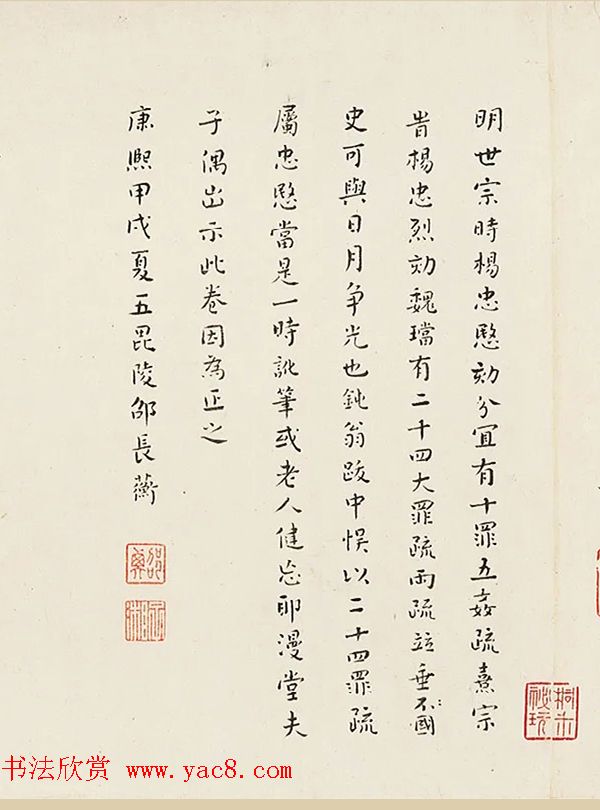 明世宗時楊忠愍劾分宜有十罪五姦疏熹宗
旹楊忠烈劾魏璫有二十四大罪疏兩疏竝垂不國
史可與日月争光也鈍翁跋中悞以二十四罪疏
屬忠愍當是一時訛筆或老人健忘耶漫堂夫
子偶出示此卷因為正之
康熙甲戌夏五毘陵邵長蘅
书法欣赏 www.yac8.com